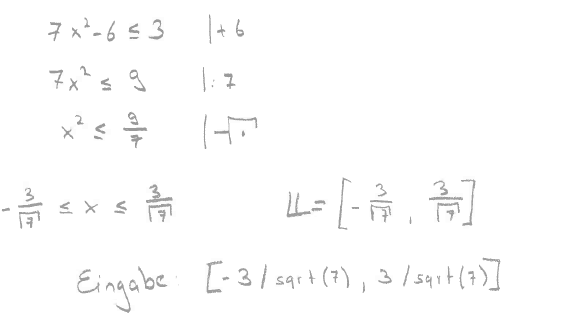 7x²-6 ≤ 3 |+6
7x² ≤ 9 |:7
x² ≤ 9/7 |√·
-3/√7 ≤ x ≤ 3/√7 𝕃 = [-3/√7 , 3/√7]
Eingabe: [-3/sqrt(7), 3/sqrt(7)]